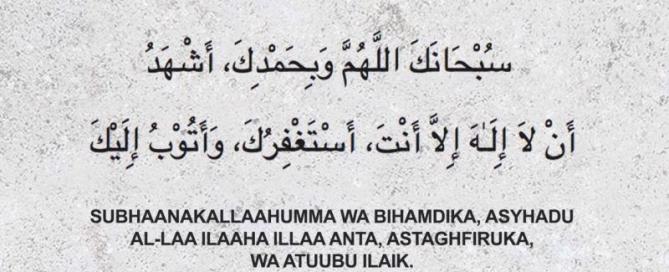 سُبْحَانَكَ اللَّهُمَّ وَبِحَمْدِكَ، أَشْهَدُ
أَنْ لَا إِلَـٰهَ إِلاَّ أَنْتَ، أَسْتَغْفِرُكَ، وَأَتُوْبُ إِلَيْكَ
SUBHAANAKALLAAHUMMA WA BIHAMDIKA, ASYHADU
AL-LAA ILAAHA ILLAA ANTA, ASTAGHFIRUKA,
WA ATUUBU ILAIK.